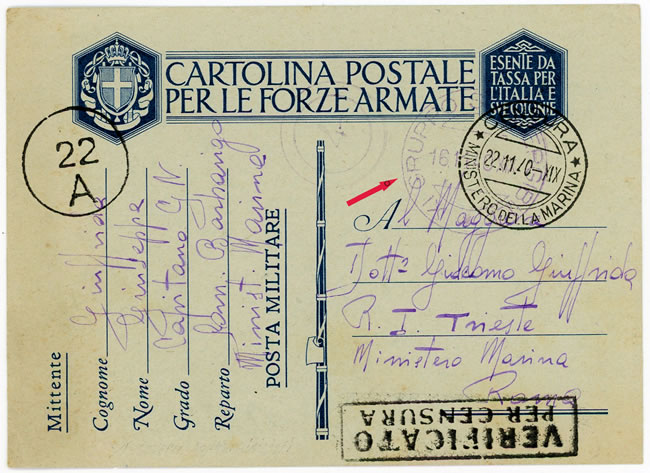 CARTOLINA POSTALE
PER LE FORZE ARMATE
ESENTE DA
TASSA PER
L'ITALIA E
LE COLONIE
22
A
GRUPPO
16
CENSURA
22.11.40-XIX
MINISTERO DELLA MARINA
A
l Maggiore
Dott. Giacomo Giuffrida
R. I. Trieste
Ministero Marina
Roma
Mittente
Cognome Giuffrida
Nome Giuseppe
Grado Capitano G.N.
Reparto Som. Barbarigo
Minist. Marina
POSTA MILITARE
VERIFICATO
PER CENSURA